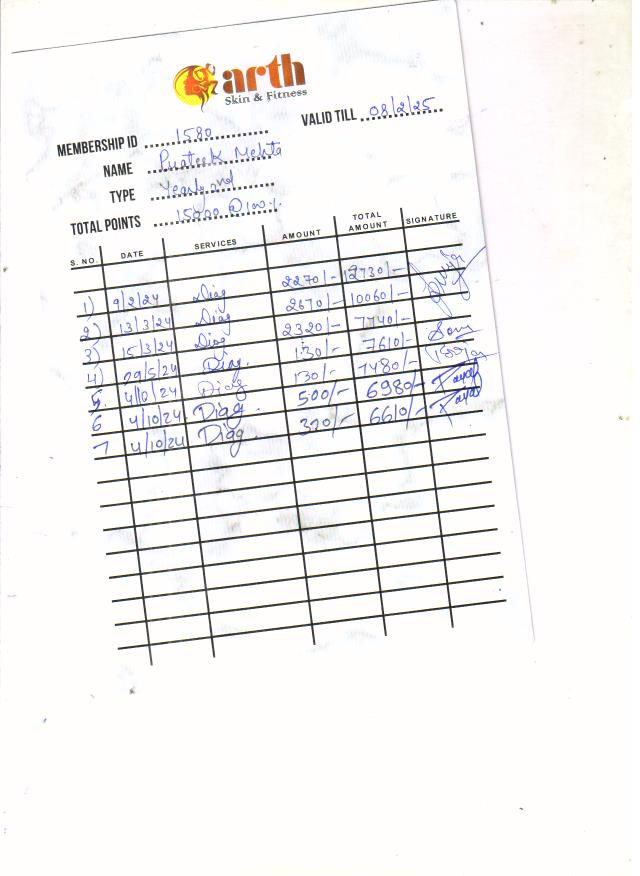 arth
Skin & Fitness
MEMBERSHIP ID 1580 VALID TILL 08/2/25
NAME Prateek Mehta
TYPE Yearly
TOTAL POINTS 15000 @100%
S. NO. DATE SERVICES AMOUNT TOTAL AMOUNT SIGNATURE
1) 9/2/24 Diag 2270/- 12730/-
2) 13/3/24 Diag 2670/- 10060/-
3) 15/3/24 Diag 2320/- 7740/-
4) 29/5/24 Diag. 130/- 7610/-
5. 4/10/24 Diag 130/- 7480/-
6 4/10/24 Diag. 500/- 6980/- Payal
7 4/10/24 Diag. 370/- 6610/- Payal